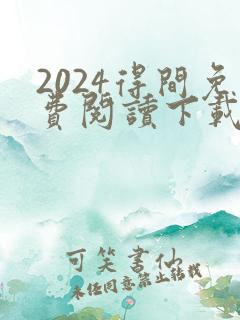 2024得間免
費閱讀下載
可笑書仙
未經同意禁止轉載